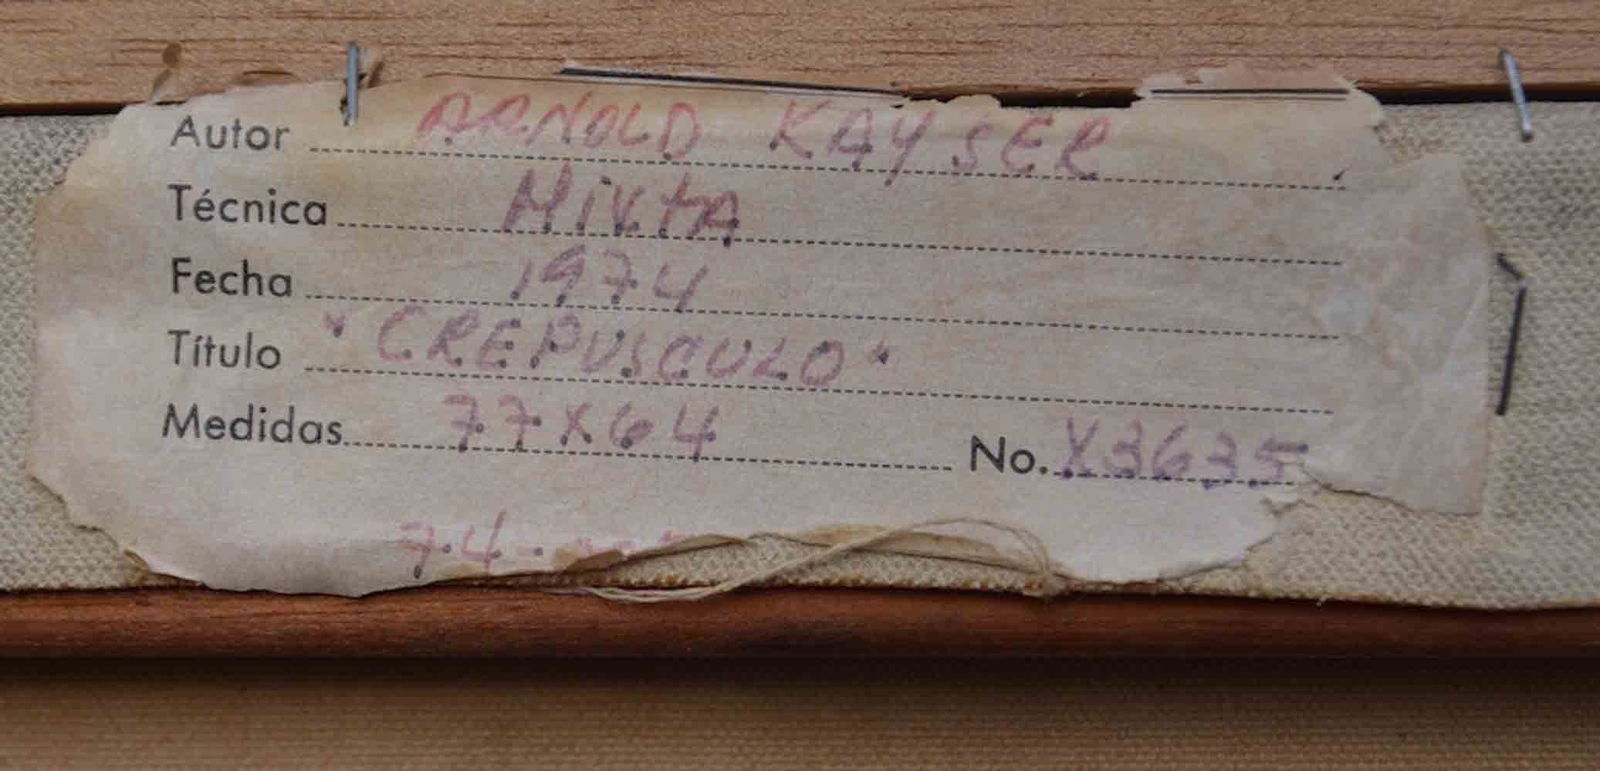 Autor ARNOLD KAYSER
Técnica MixtA
Fecha 1974
Título "CREPUSCULO"
Medidas 77x64 No. X3635
74